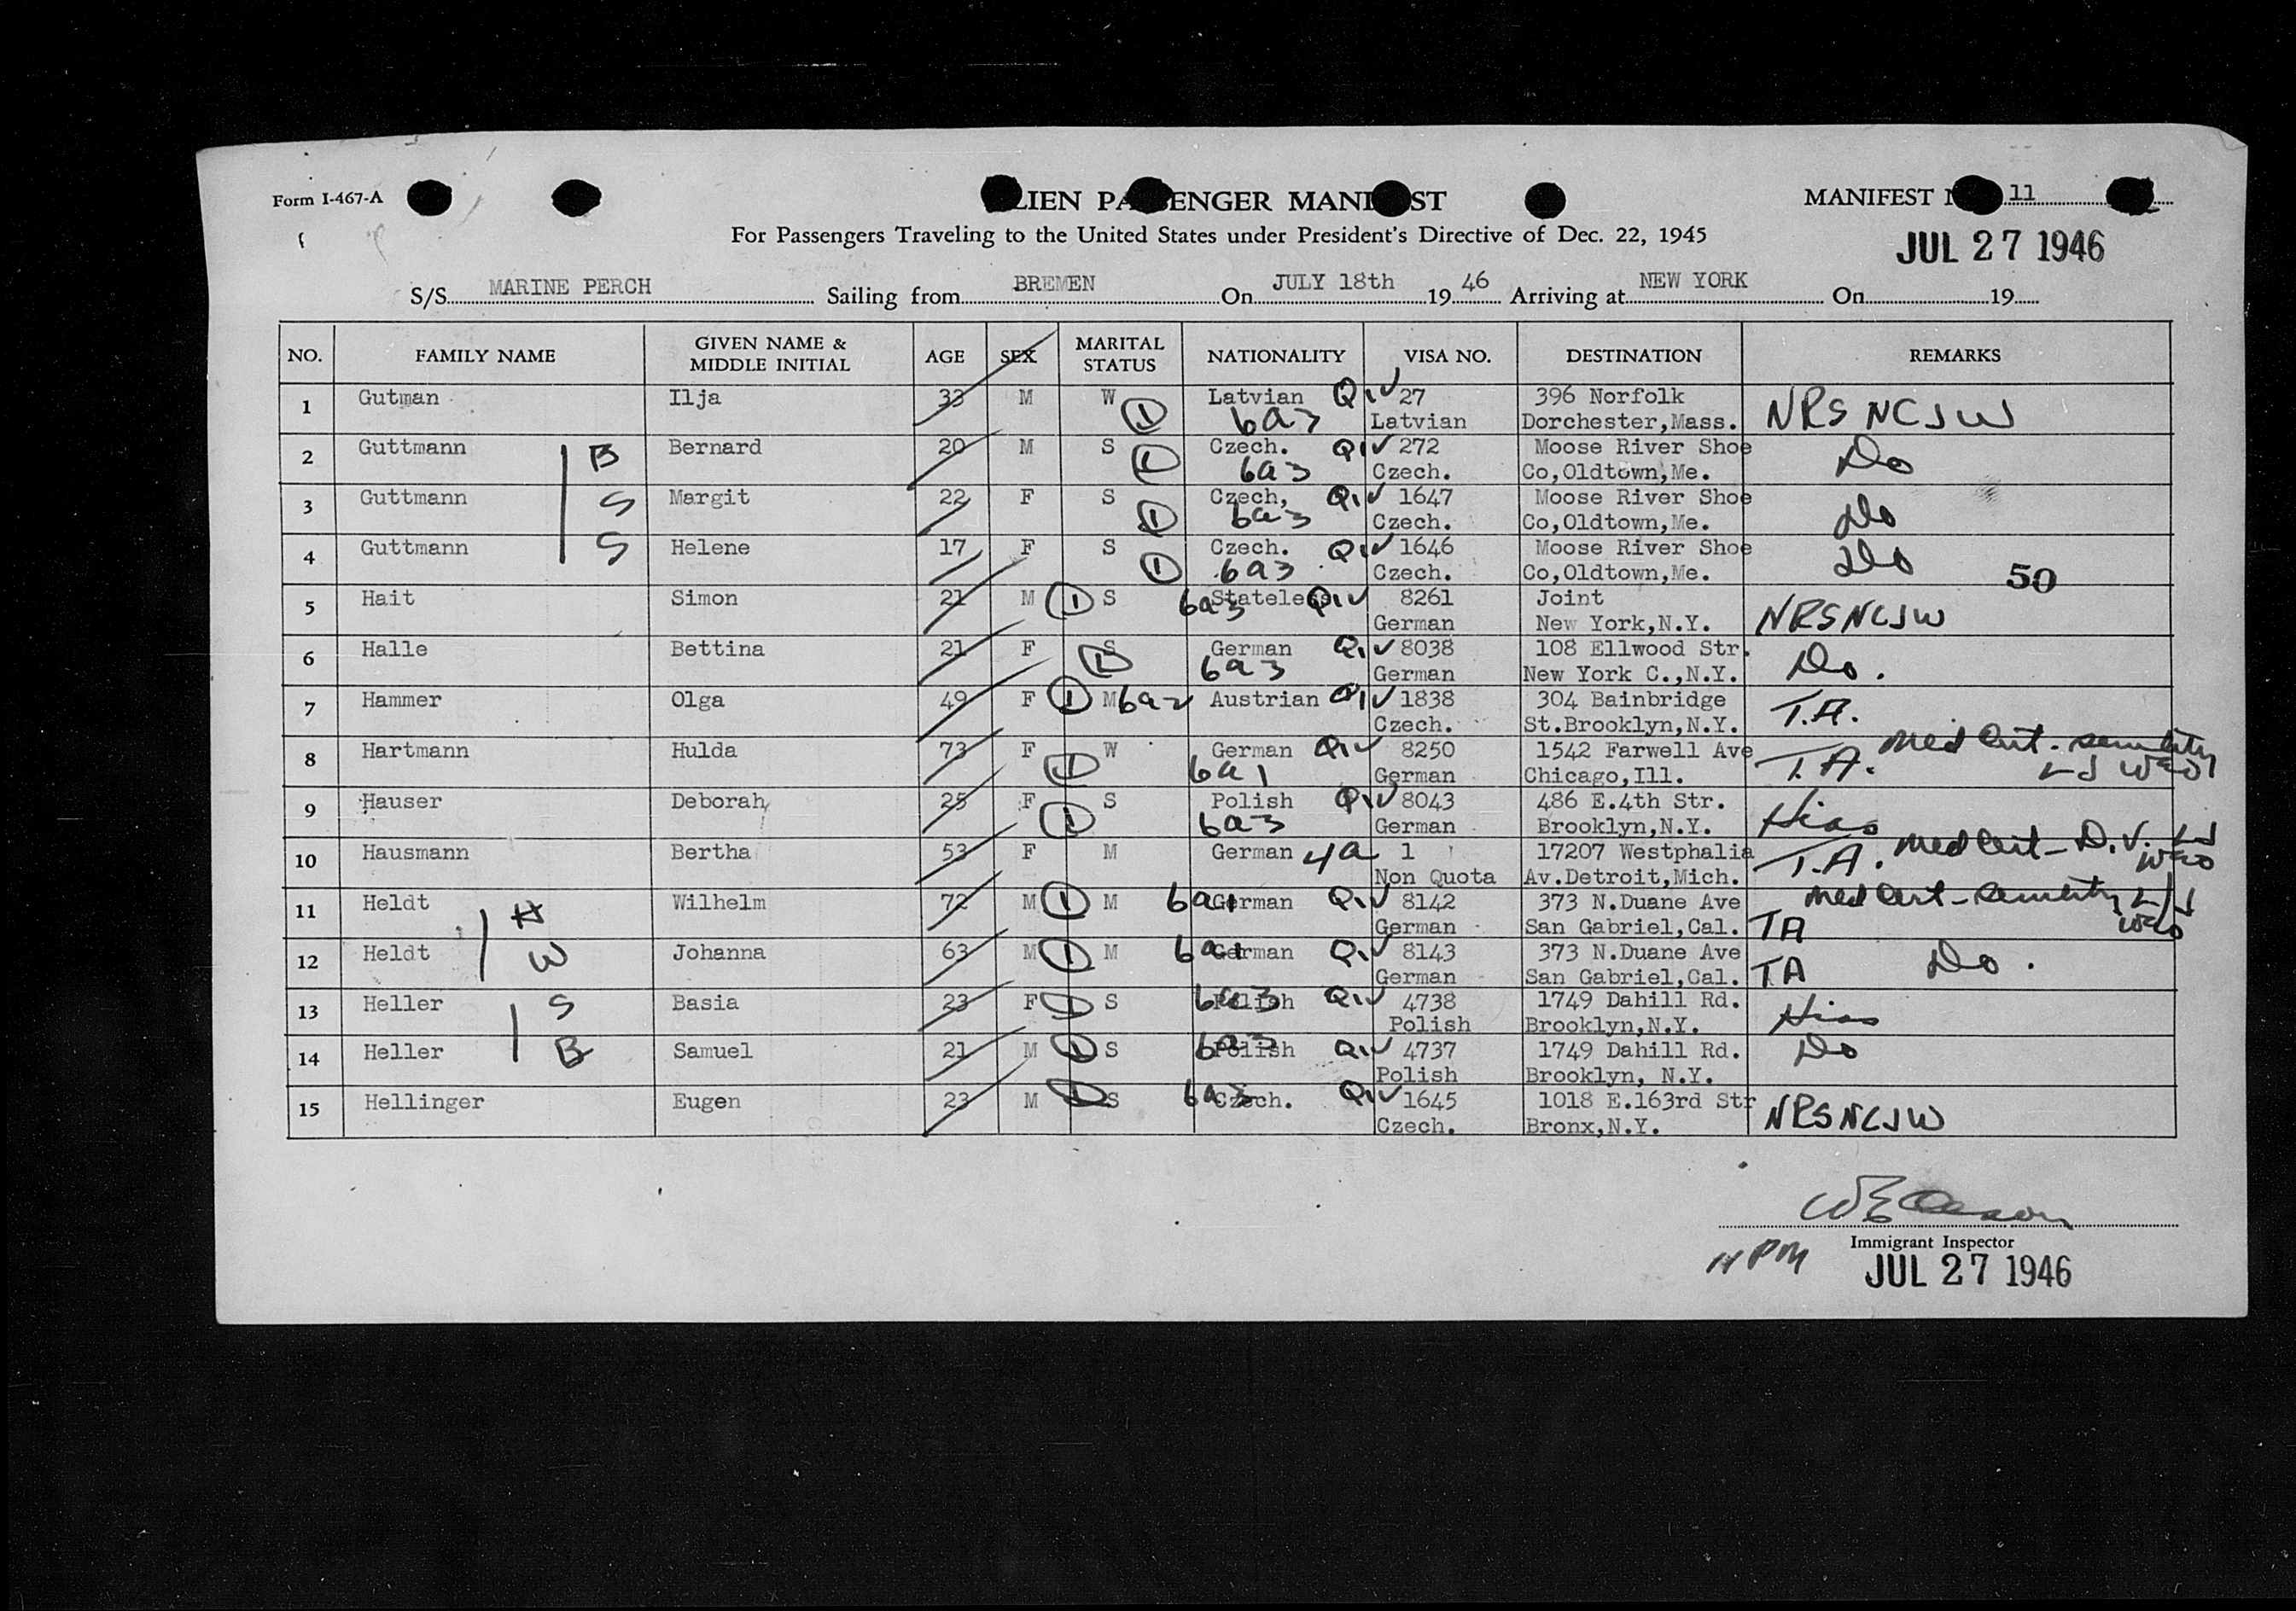 Form I-467-A
LIEN PA ENGER MANI ST
MANIFEST N 11
For Passengers Traveling to the United States under President's Directive of Dec. 22, 1945
JUL 27 1946
S/S MARINE PERCH Sailing from BREMEN On JULY 18th 19 46 Arriving at NEW YORK On 19
NO. FAMILY NAME GIVEN NAME & MIDDLE INITIAL AGE SEX MARITAL STATUS NATIONALITY VISA NO. DESTINATION REMARKS
1 Gutman Ilja 33 M W 1 Latvian 6a3 Q1 ✓ 27 396 Norfolk NRS NCJW
Latvian Dorchester,Mass.
2 Guttmann B Bernard 20 M S 1 Czech. 6a3 Q1 ✓ 272 Moose River Shoe Do
Czech. Co,Oldtown,Me.
3 Guttmann S Margit 22 F S 1 Czech, 6a3 Q1 ✓ 1647 Moose River Shoe Do
Czech. Co,Oldtown,Me.
4 Guttmann S Helene 17 F S 1 Czech. 6a3 Q1 ✓ 1646 Moose River Shoe Do
Czech. Co,Oldtown,Me. 50
5 Hait Simon 21 M 1 S 6a3 Stateless Q1 ✓ 8261 Joint NRSNCJW
German New York,N.Y.
6 Halle Bettina 21 F S 1 German 6a3 Q1 ✓ 8038 108 Ellwood Str. Do.
German New York C.,N.Y.
7 Hammer Olga 49 F 1 M 6a2 Austrian Q1 ✓ 1838 304 Bainbridge T.A.
Czech. St.Brooklyn,N.Y.
8 Hartmann Hulda 73 F 1 W German 6a1 Q1 ✓ 8250 1542 Farwell Ave T.A. Med Cert. senility
German Chicago,Ill.
9 Hauser Deborah 25 F 1 S Polish 6a3 Q1 ✓ 8043 486 E.4th Str. Hias
German Brooklyn,N.Y.
10 Hausmann Bertha 53 F M German 4a 1 17207 Westphalia T.A. Med Cert - D.V.
Non Quota Av.Detroit,Mich.
11 Heldt H Wilhelm 72 M 1 M 6a1 German Q1 ✓ 8142 373 N.Duane Ave Med Cert - Senility
German San Gabriel,Cal. TA
12 Heldt W Johanna 63 M 1 M 6a1 German Q1 ✓ 8143 373 N.Duane Ave Do.
German San Gabriel,Cal. TA
13 Heller S Basia 23 F 1 S 6a3 Polish Q1 ✓ 4738 1749 Dahill Rd. Hias
Polish Brooklyn,N.Y.
14 Heller B Samuel 21 M 1 S 6a3 Polish Q1 ✓ 4737 1749 Dahill Rd. Do
Polish Brooklyn, N.Y.
15 Hellinger Eugen 23 M 1 S 6a3 Czech. Q1 ✓ 1645 1018 E.163rd Str NRSNCJW
Czech. Bronx,N.Y.
Immigrant Inspector
HPM
JUL 27 1946